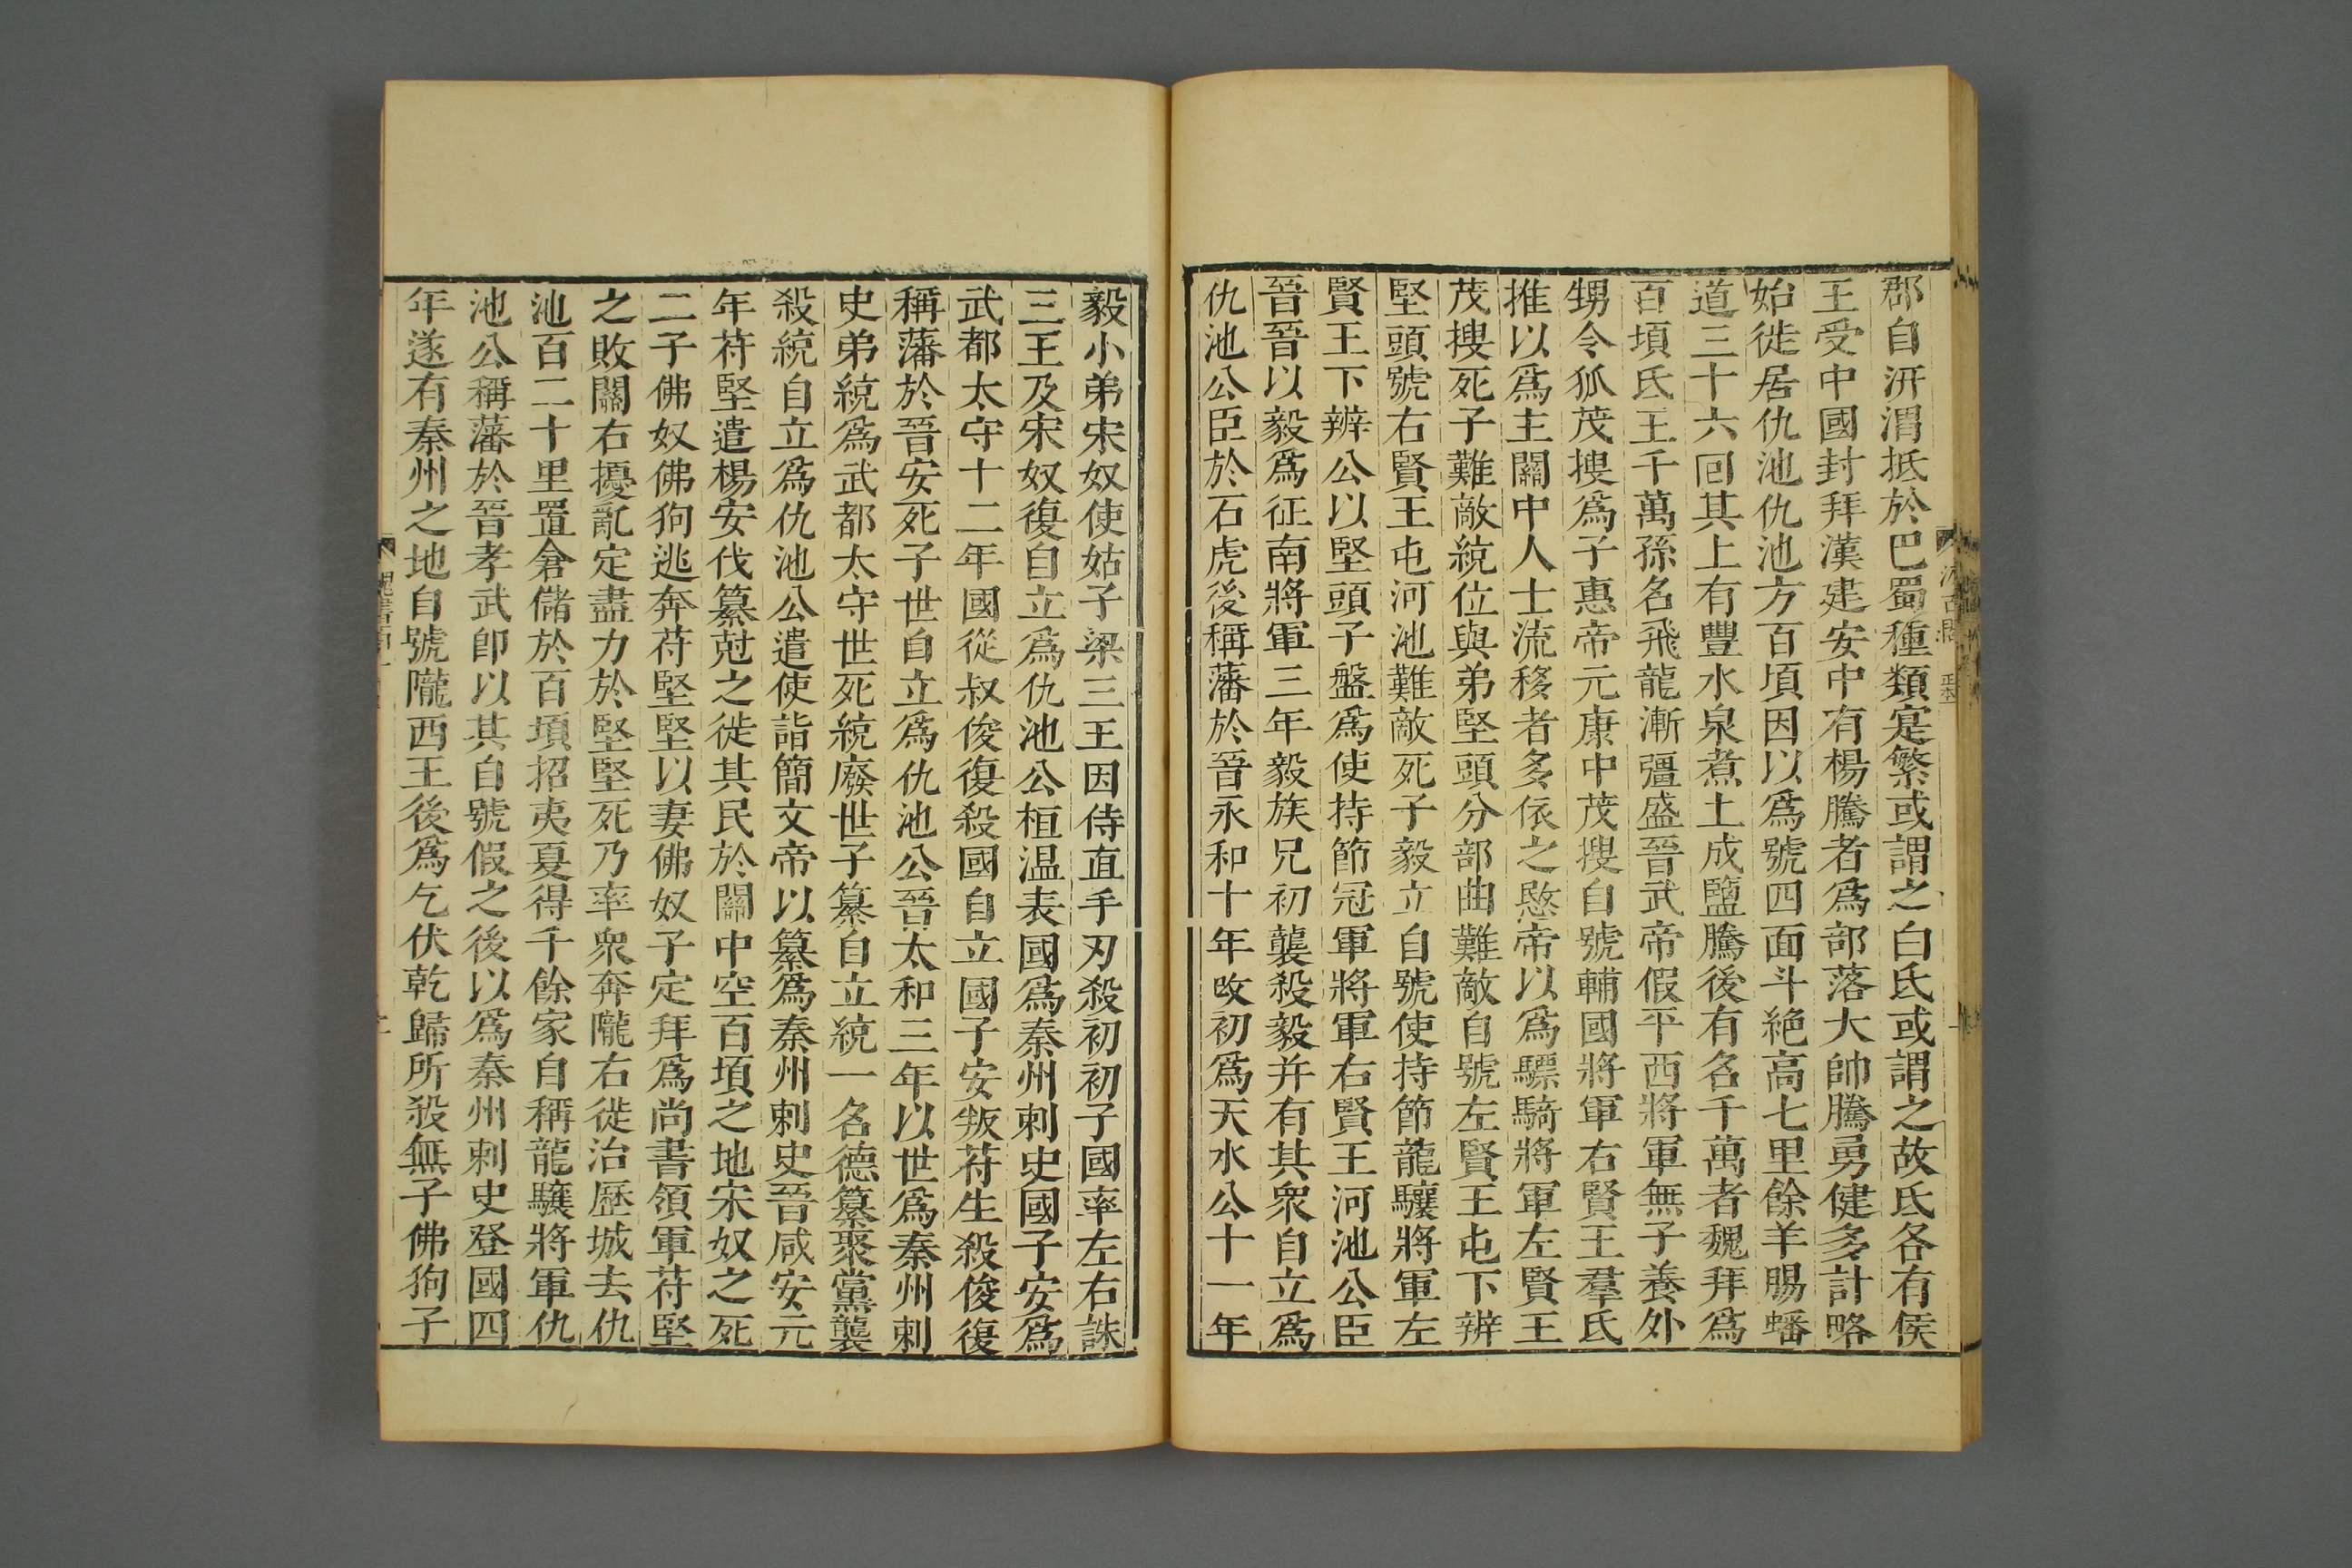 郡自汧渭抵於巴蜀種類寔繁或謂之白氐或謂之故氐各有侯
王受中國封拜漢建安中有楊騰者爲部落大帥騰勇健多計略
始徙居仇池仇池方百頃因以爲號四面斗絶高七里餘羊腸蟠
道三十六回其上有豐水泉煮土成鹽騰後有名千萬者魏拜爲
百頃氐王千萬孫名飛龍漸彊盛晉武帝假平西將軍無子養外
甥令狐茂搜爲子惠帝元康中茂搜自號輔國將軍右賢王羣氐
推以爲主關中人士流移者多依之愍帝以爲驃騎將軍左賢王
茂搜死子難敵統位與弟堅頭分部曲難敵自號左賢王屯下辨
堅頭號右賢王屯河池難敵死子毅立自號使持節龍驤將軍左
賢王下辨公以堅頭子盤爲使持節冠軍將軍右賢王河池公臣
晉晉以毅爲征南將軍三年毅族兄初襲殺毅并有其衆自立爲
仇池公臣於石虎後稱藩於晉永和十年改初爲天水公十一年
毅小弟宋奴使姑子梁三王因侍直手刃殺初初子國率左右誅
三王及宋奴復自立爲仇池公桓温表國爲秦州刺史國子安爲
武都太守十二年國從叔俊復殺國自立國子安叛苻生殺俊復
稱藩於晉安死子世自立爲仇池公晉太和三年以世爲秦州刺
史弟統爲武都太守世死統廢世子纂自立統一名德纂聚黨襲
殺統自立爲仇池公遣使詣簡文帝以纂爲秦州刺史晉咸安元
年苻堅遣楊安伐纂尅之徙其民於關中空百頃之地宋奴之死
二子佛奴佛狗逃奔苻堅堅以妻佛奴子定拜爲尚書領軍苻堅
之敗關右擾亂定盡力於堅堅死乃率衆奔隴右徙治歷城去仇
池百二十里置倉儲於百頃招夷夏得千餘家自稱龍驤將軍仇
池公稱藩於晉孝武即以其自號假之後以爲秦州刺史登國四
年遂有秦州之地自號隴西王後爲乞伏乾歸所殺無子佛狗子